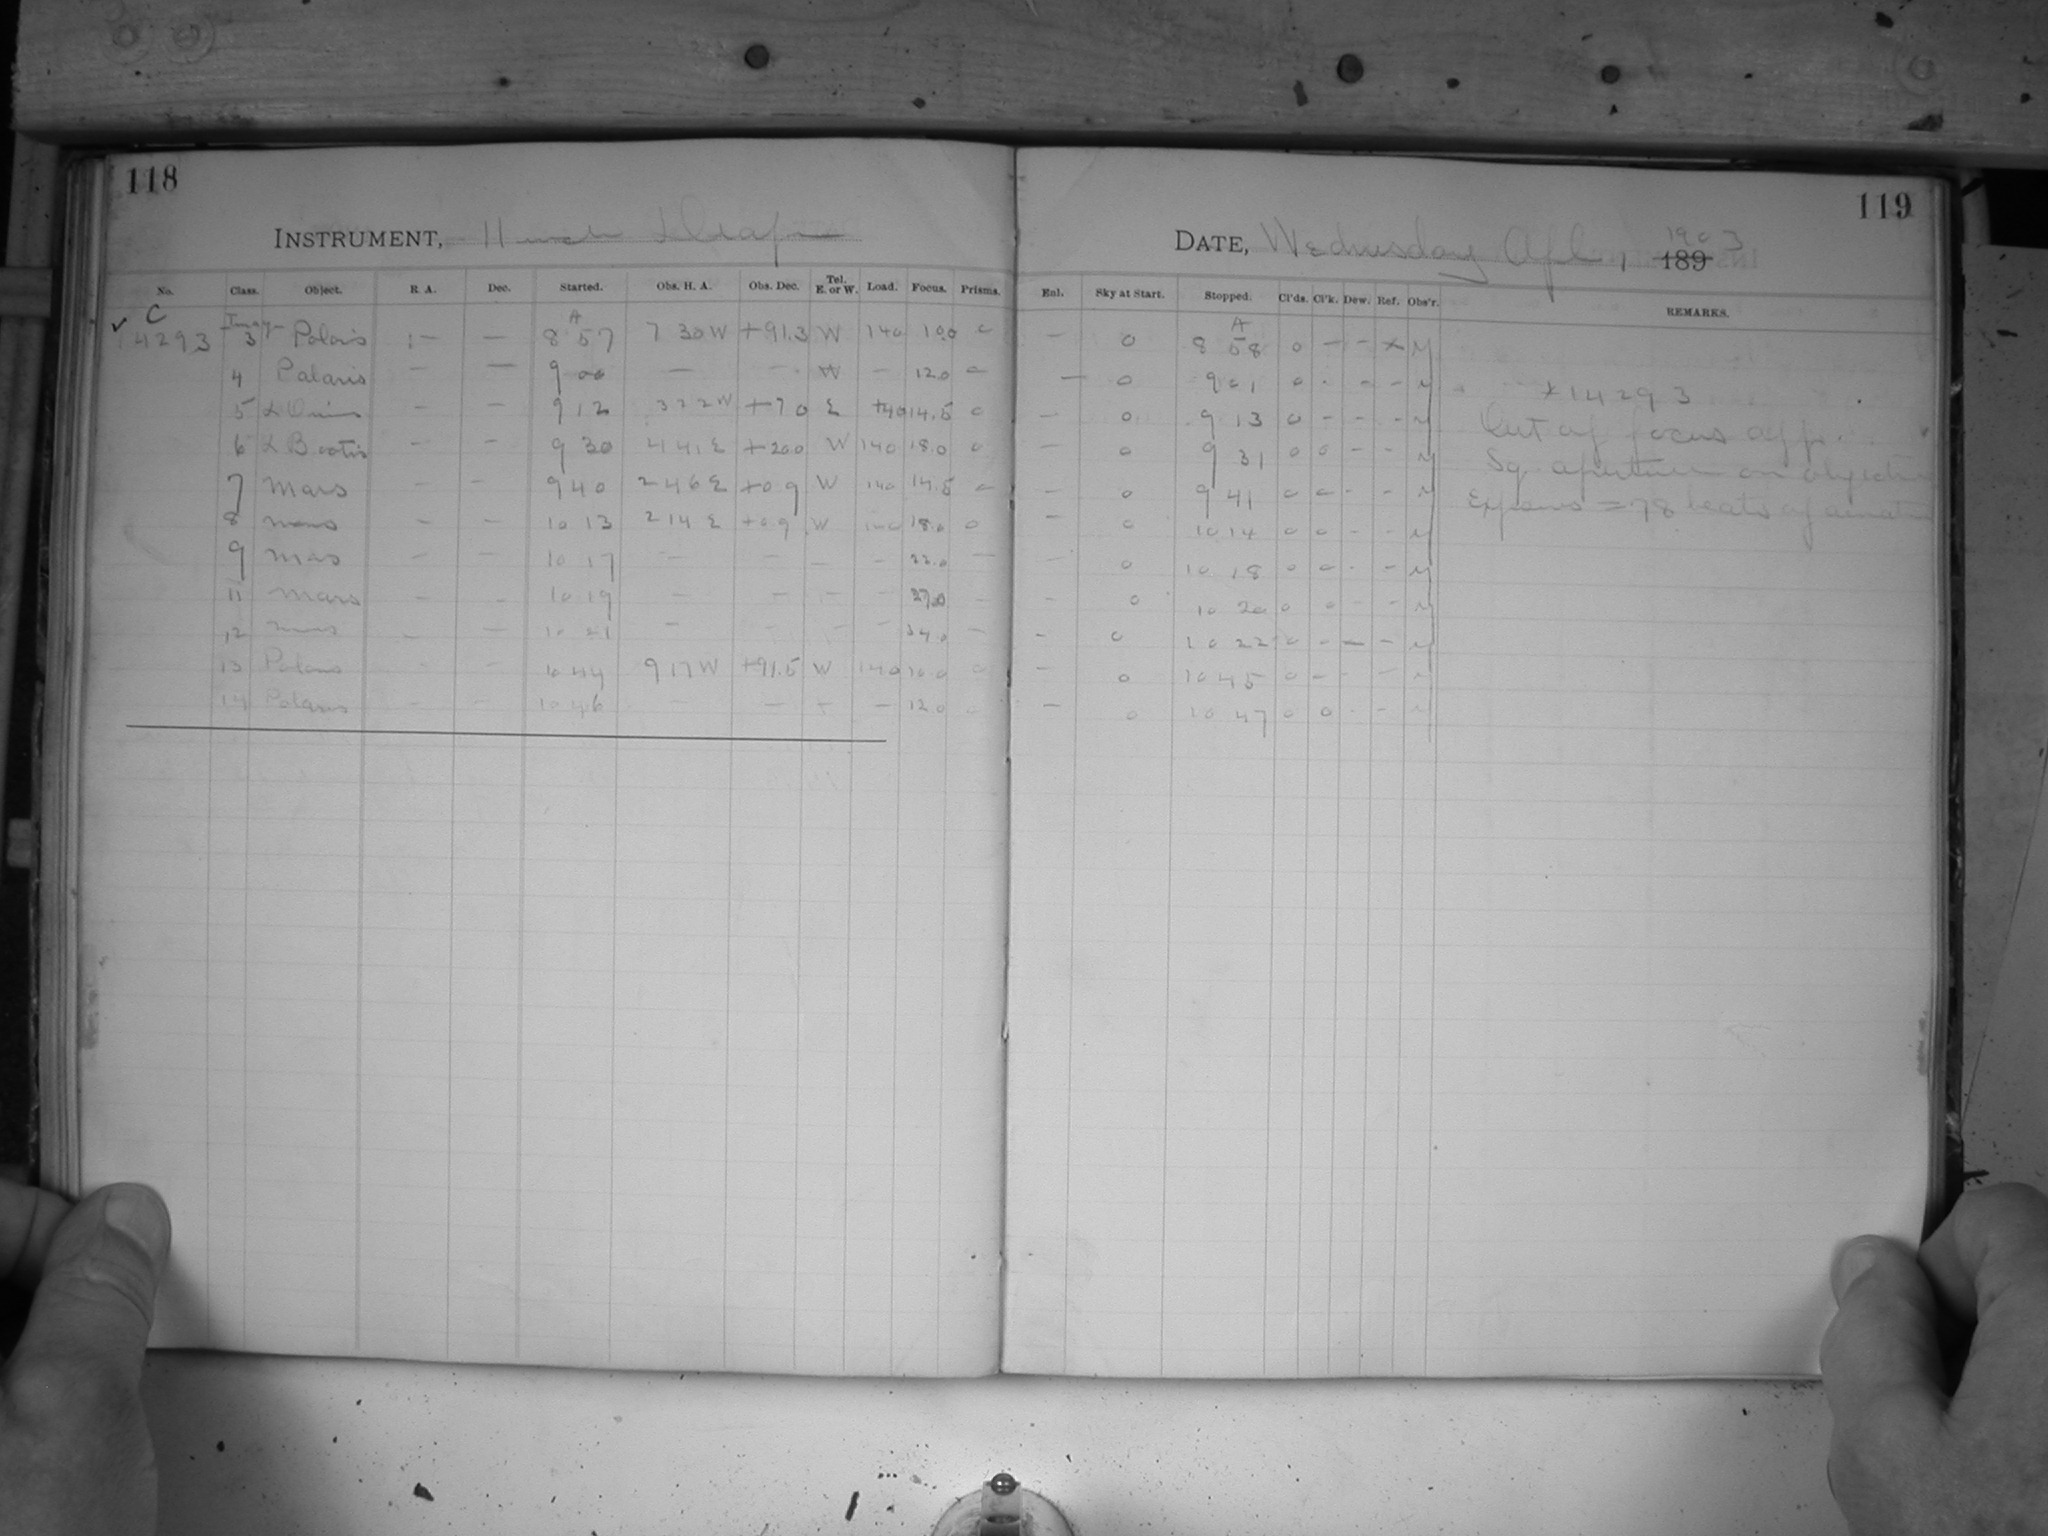 118
INSTRUMENT, 11 inch Draper
No. Class. Object. R. A. Dec. Started. Obs. H. A. Obs. Dec. Tel. E. or W. Load. Focus. Prisms.
C A
✓ 14293 3 Polaris — — 8 57 7 30 W +91.3 W 140 10.0 o
4 Polaris — — 9 00 — — W — 12.0 o
5 — — 9 12 3 22 W +7 0 E 140 14.5 o
6 α Bootis — — 9 30 4 41 E +20.0 W 140 18.0 o
7 Mars — — 9 40 2 46 E +0.9 W 140 14.5 o
8 Mars — — 10 13 2 14 E +0.9 W 140 18.0 o
9 Mars — — 10 17 — — — — 22.0 —
11 Mars — — 10 19 — — — — 27.0 —
12 Mars — — 10 21 — — — — 34.0 —
13 Polaris — — 10 44 9 17 W +91.5 W 140 10.0 o
14 Polaris — — 10 46 — — — — 12.0 o
119
DATE, Wednesday Apl. 1 1903 189
Enl. Sky at Start. Stopped. Cl'ds. Cl'k. Dew. Ref. Obs'r. REMARKS.
A
— o 8 58 o — — x M
— o 9 01 o - — — M x 14293
— o 9 13 o — — — M Out of focus
— o 9 31 o o — — M Sq. aperture on objective
— o 9 41 o o - — M Expos = 78 beats of
— o 10 14 o o - — M
— o 10 18 o o - — M
— o 10 20 o o — — M
— o 10 22 o — — — M
— o 10 45 o — — — M
— o 10 47 o o - — M